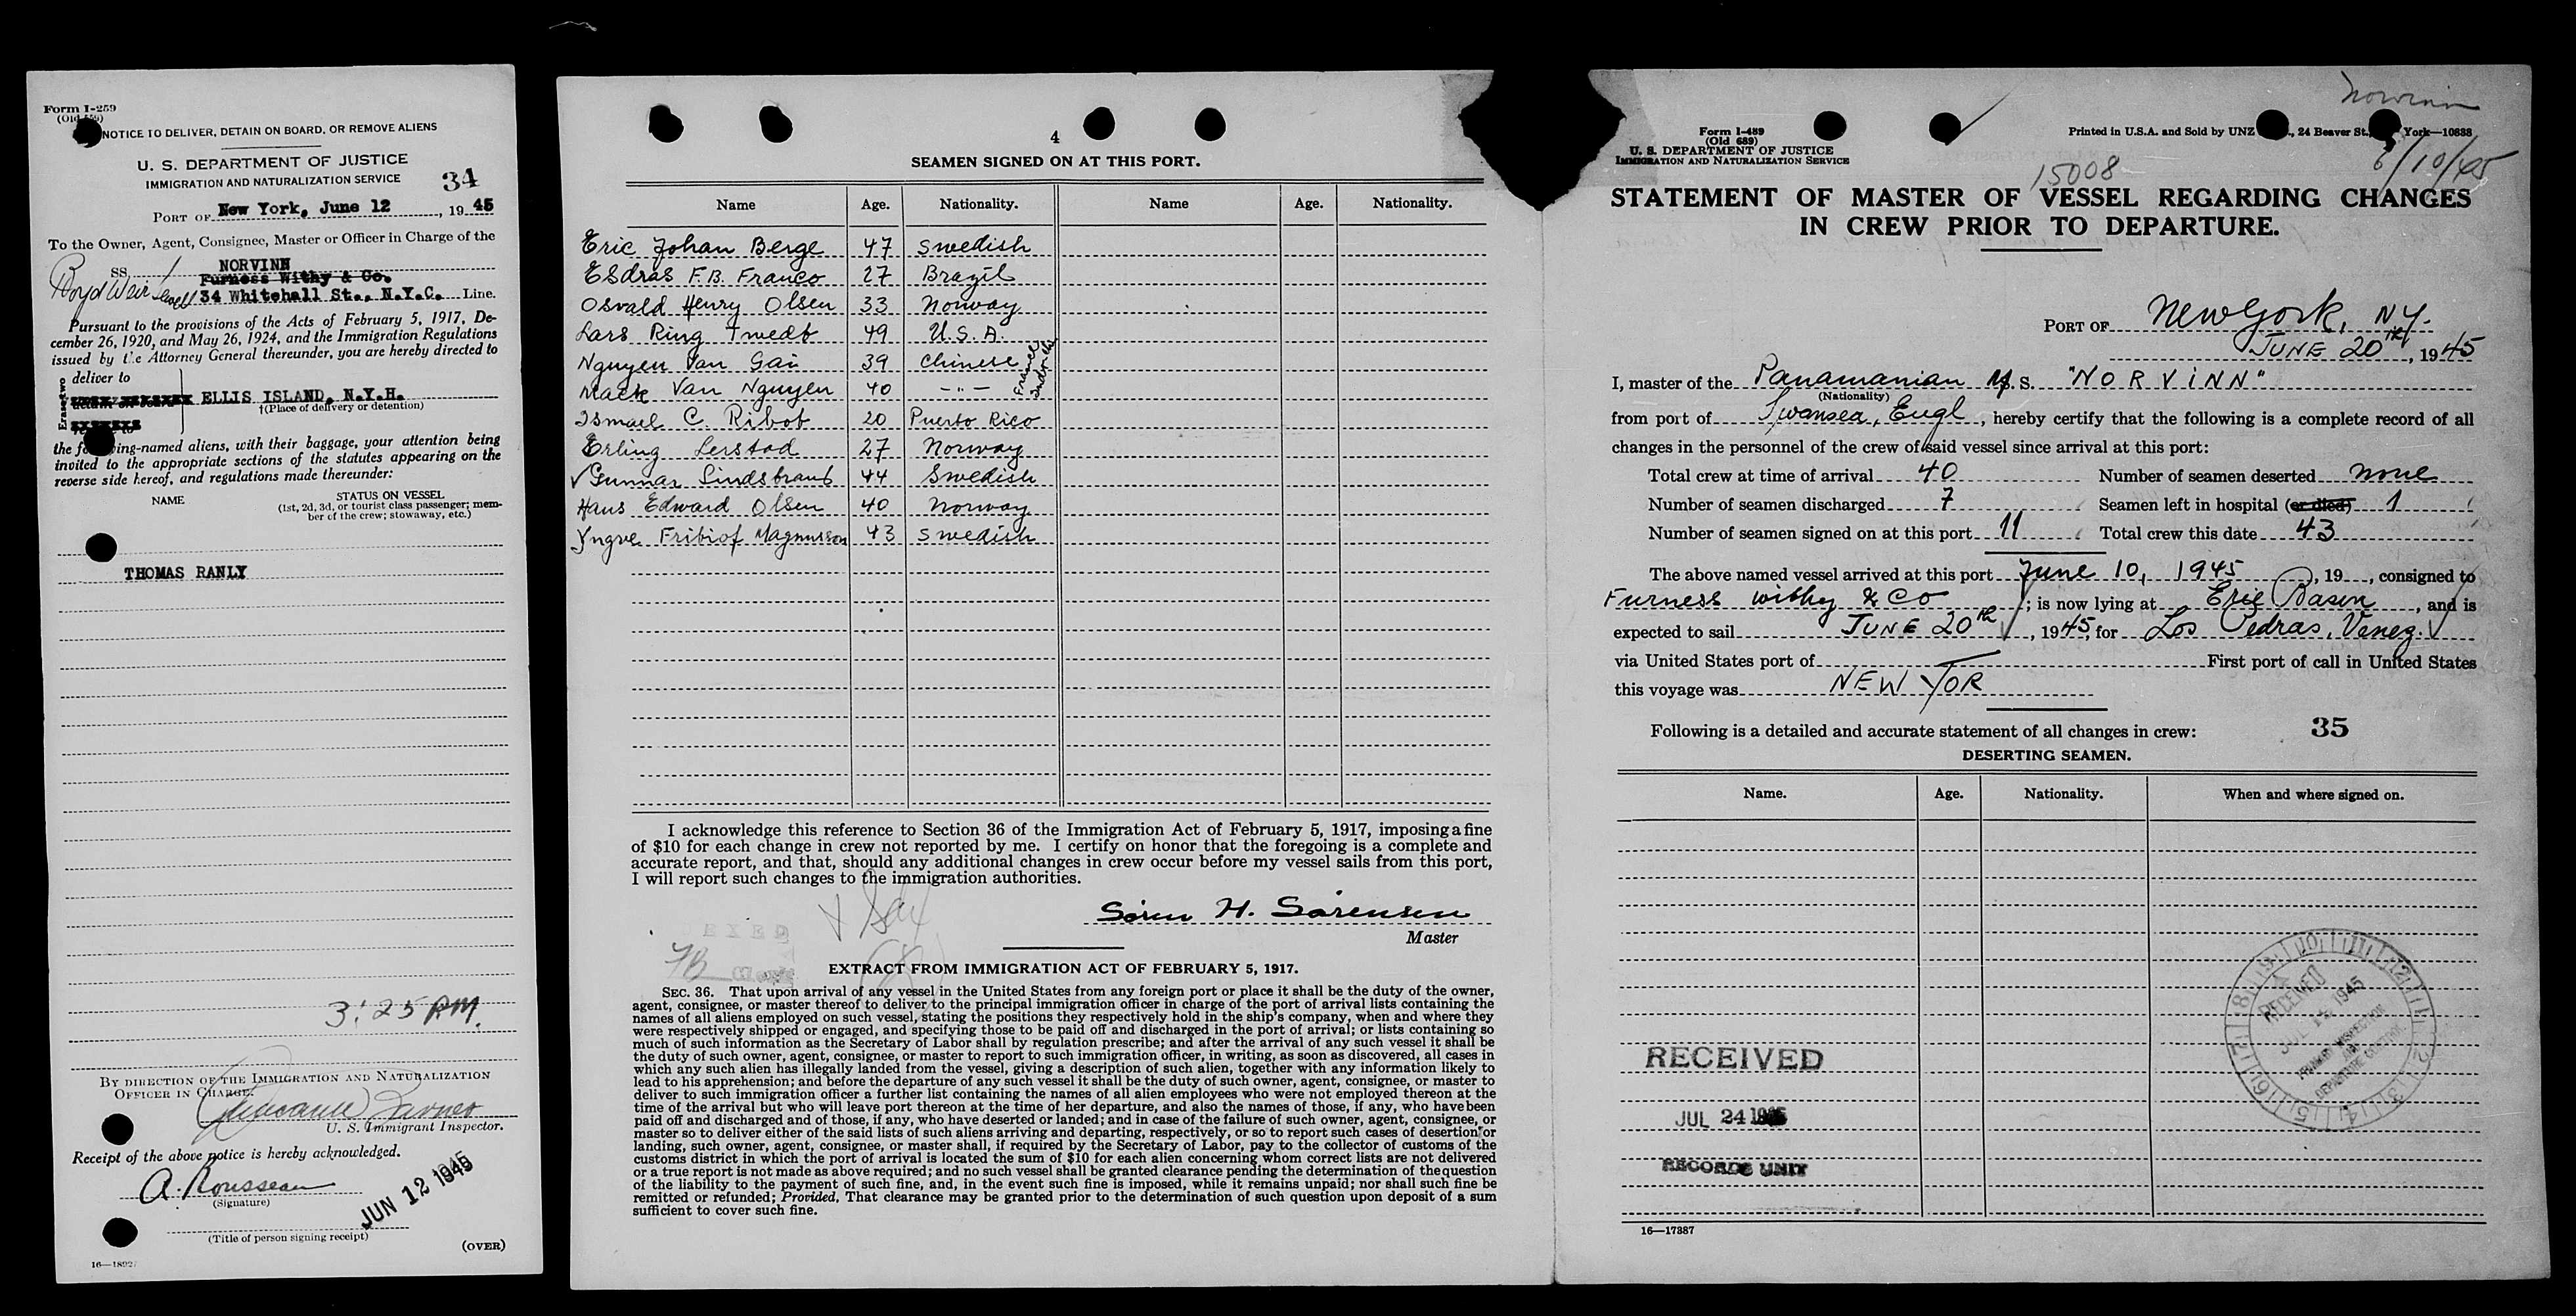 Form I-259
(Old
NOTICE TO DELIVER, DETAIN ON BOARD, OR REMOVE ALIENS
U. S. DEPARTMENT OF JUSTICE
IMMIGRATION AND NATURALIZATION SERVICE
34
PORT OF New York, June 12, 1945
To the Owner, Agent, Consignee, Master or Officer in Charge of the
SS. NORVINN
Furness Withy & Co.
Boyd Weir Sewell 34 Whitehall St., N.Y.C. Line.
Pursuant to the provisions of the Acts of February 5, 1917, De-
cember 26, 1920, and May 26, 1924, and the Immigration Regulations
issued by the Attorney General thereunder, you are hereby directed to
Erase two
deliver to
ELLIS ISLAND, N.Y.H.
†(Place of delivery or detention)
the following-named aliens, with their baggage, your attention being
invited to the appropriate sections of the statutes appearing on the
reverse side hereof, and regulations made thereunder:
NAME
STATUS ON VESSEL
(1st, 2d, 3d, or tourist class passenger; mem-
ber of the crew; stowaway, etc.)
THOMAS RANLY
3:25 PM.
BY DIRECTION OF THE IMMIGRATION AND NATURALIZATION
OFFICER IN CHARGE:
U. S. Immigrant Inspector.
Receipt of the above notice is hereby acknowledged.
A. Rousseau
(Signature)
JUN 12 1945
(Title of person signing receipt)
(OVER)
16—1892
4
SEAMEN SIGNED ON AT THIS PORT.
Name Age. Nationality. Name Age. Nationality.
Eric Johan Berge 47 Swedish
Esdras F.B. Franco 27 Brazil
Osvald Henry Olsen 33 Norway
Lars Ring Twedt 49 U.S.A.
Nguyen Van Gai 39 Chinese
Mack Van Nguyen 40 —"—
French Indochi
Ismael C. Ribot 20 Puerto Rico
Erling Lerstad 27 Norway
√ Gunnar Lindstrant 44 Swedish
Hans Edward Olsen 40 Norway
Yngve Fribiof Magnusson 43 Swedish
I acknowledge this reference to Section 36 of the Immigration Act of February 5, 1917, imposing a fine
of $10 for each change in crew not reported by me. I certify on honor that the foregoing is a complete and
accurate report, and that, should any additional changes in crew occur before my vessel sails from this port,
I will report such changes to the immigration authorities.
Sören H. Sörensen
Master
EXTRACT FROM IMMIGRATION ACT OF FEBRUARY 5, 1917.
SEC. 36. That upon arrival of any vessel in the United States from any foreign port or place it shall be the duty of the owner,
agent, consignee, or master thereof to deliver to the principal immigration officer in charge of the port of arrival lists containing the
names of all aliens employed on such vessel, stating the positions they respectively hold in the ship's company, when and where they
were respectively shipped or engaged, and specifying those to be paid off and discharged in the port of arrival; or lists containing so
much of such information as the Secretary of Labor shall by regulation prescribe; and after the arrival of any such vessel it shall be
the duty of such owner, agent, consignee, or master to report to such immigration officer, in writing, as soon as discovered, all cases in
which any such alien has illegally landed from the vessel, giving a description of such alien, together with any information likely to
lead to his apprehension; and before the departure of any such vessel it shall be the duty of such owner, agent, consignee, or master to
deliver to such immigration officer a further list containing the names of all alien employees who were not employed thereon at the
time of the arrival but who will leave port thereon at the time of her departure, and also the names of those, if any, who have been
paid off and discharged and of those, if any, who have deserted or landed; and in case of the failure of such owner, agent, consignee, or
master so to deliver either of the said lists of such aliens arriving and departing, respectively, or so to report such cases of desertion or
landing, such owner, agent, consignee, or master shall, if required by the Secretary of Labor, pay to the collector of customs of the
customs district in which the port of arrival is located the sum of $10 for each alien concerning whom correct lists are not delivered
or a true report is not made as above required; and no such vessel shall be granted clearance pending the determination of the question
of the liability to the payment of such fine, and, in the event such fine is imposed, while it remains unpaid; nor shall such fine be
remitted or refunded; Provided, That clearance may be granted prior to the determination of such question upon deposit of a sum
sufficient to cover such fine.
Norvinn
Form I-489
(Old 689)
U. S. DEPARTMENT OF JUSTICE
IMMIGRATION AND NATURALIZATION SERVICE
Printed in U.S.A. and Sold by UNZ , 24 Beaver St., York—10838
15008
6/10/45
STATEMENT OF MASTER OF VESSEL REGARDING CHANGES
IN CREW PRIOR TO DEPARTURE.
PORT OF New York, NY.
JUNE 20th, 1945
I, master of the Panamanian M. S. "NORVINN"
(Nationality)
from port of Swansea, Engl, hereby certify that the following is a complete record of all
changes in the personnel of the crew of said vessel since arrival at this port:
Total crew at time of arrival 40 Number of seamen deserted none
Number of seamen discharged 7 Seamen left in hospital (or died) 1
Number of seamen signed on at this port 11 Total crew this date 43
The above named vessel arrived at this port June 10, 1945, 19 , consigned to
Furness withy & Co; is now lying at Erie Basin, and is
expected to sail JUNE 20th, 1945, for Los Pedras, Venez.
via United States port of First port of call in United States
this voyage was NEW YOR
Following is a detailed and accurate statement of all changes in crew: 35
DESERTING SEAMEN.
Name. Age. Nationality. When and where signed on.
RECEIVED
JUL 24 1945
RECORDS UNIT
RECEIVED
1945
16—17387